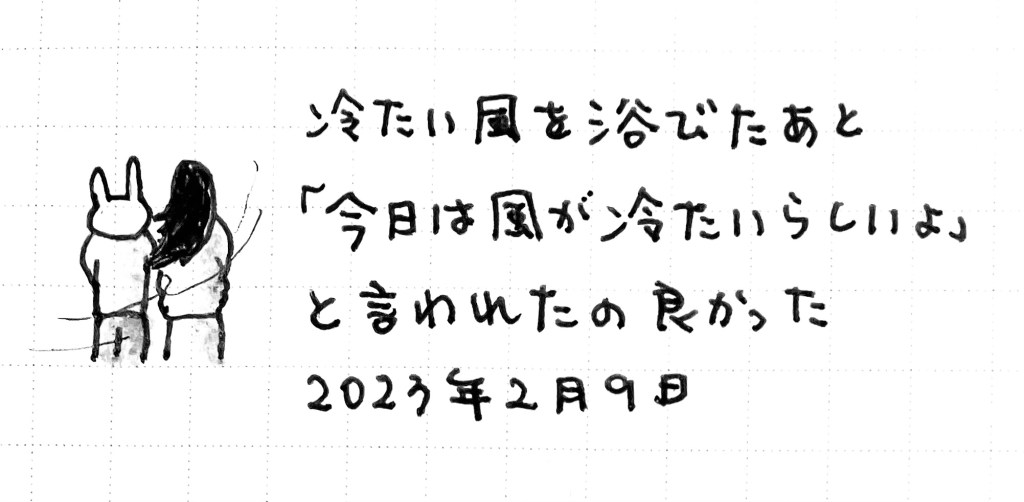 冷たい風を浴びたあと
「今日は風が冷たいらしいよ」
と言われたの良かった
2023年2月9日